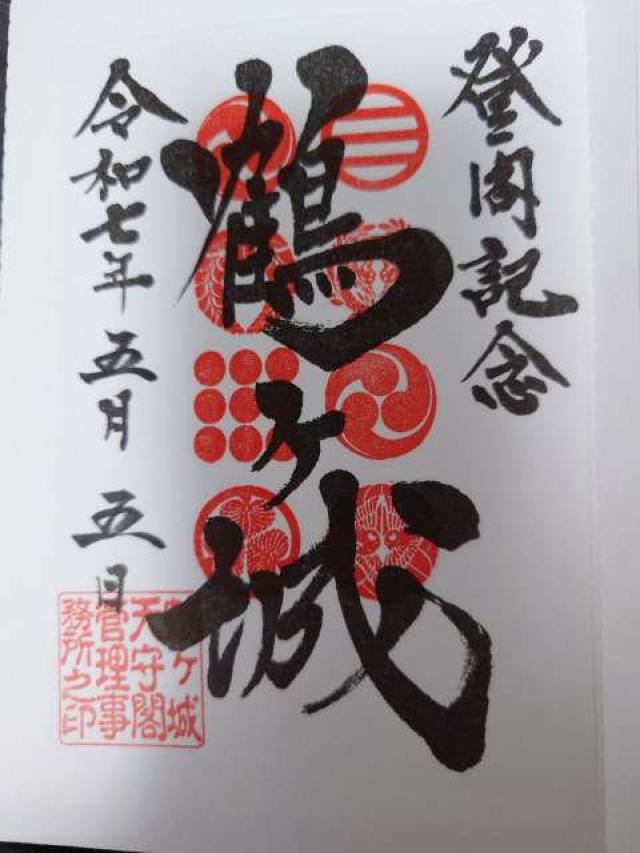 登閣記念
鶴ヶ城
令和七年 五月 五日
鶴ヶ城
天守閣
管理事
務所之印